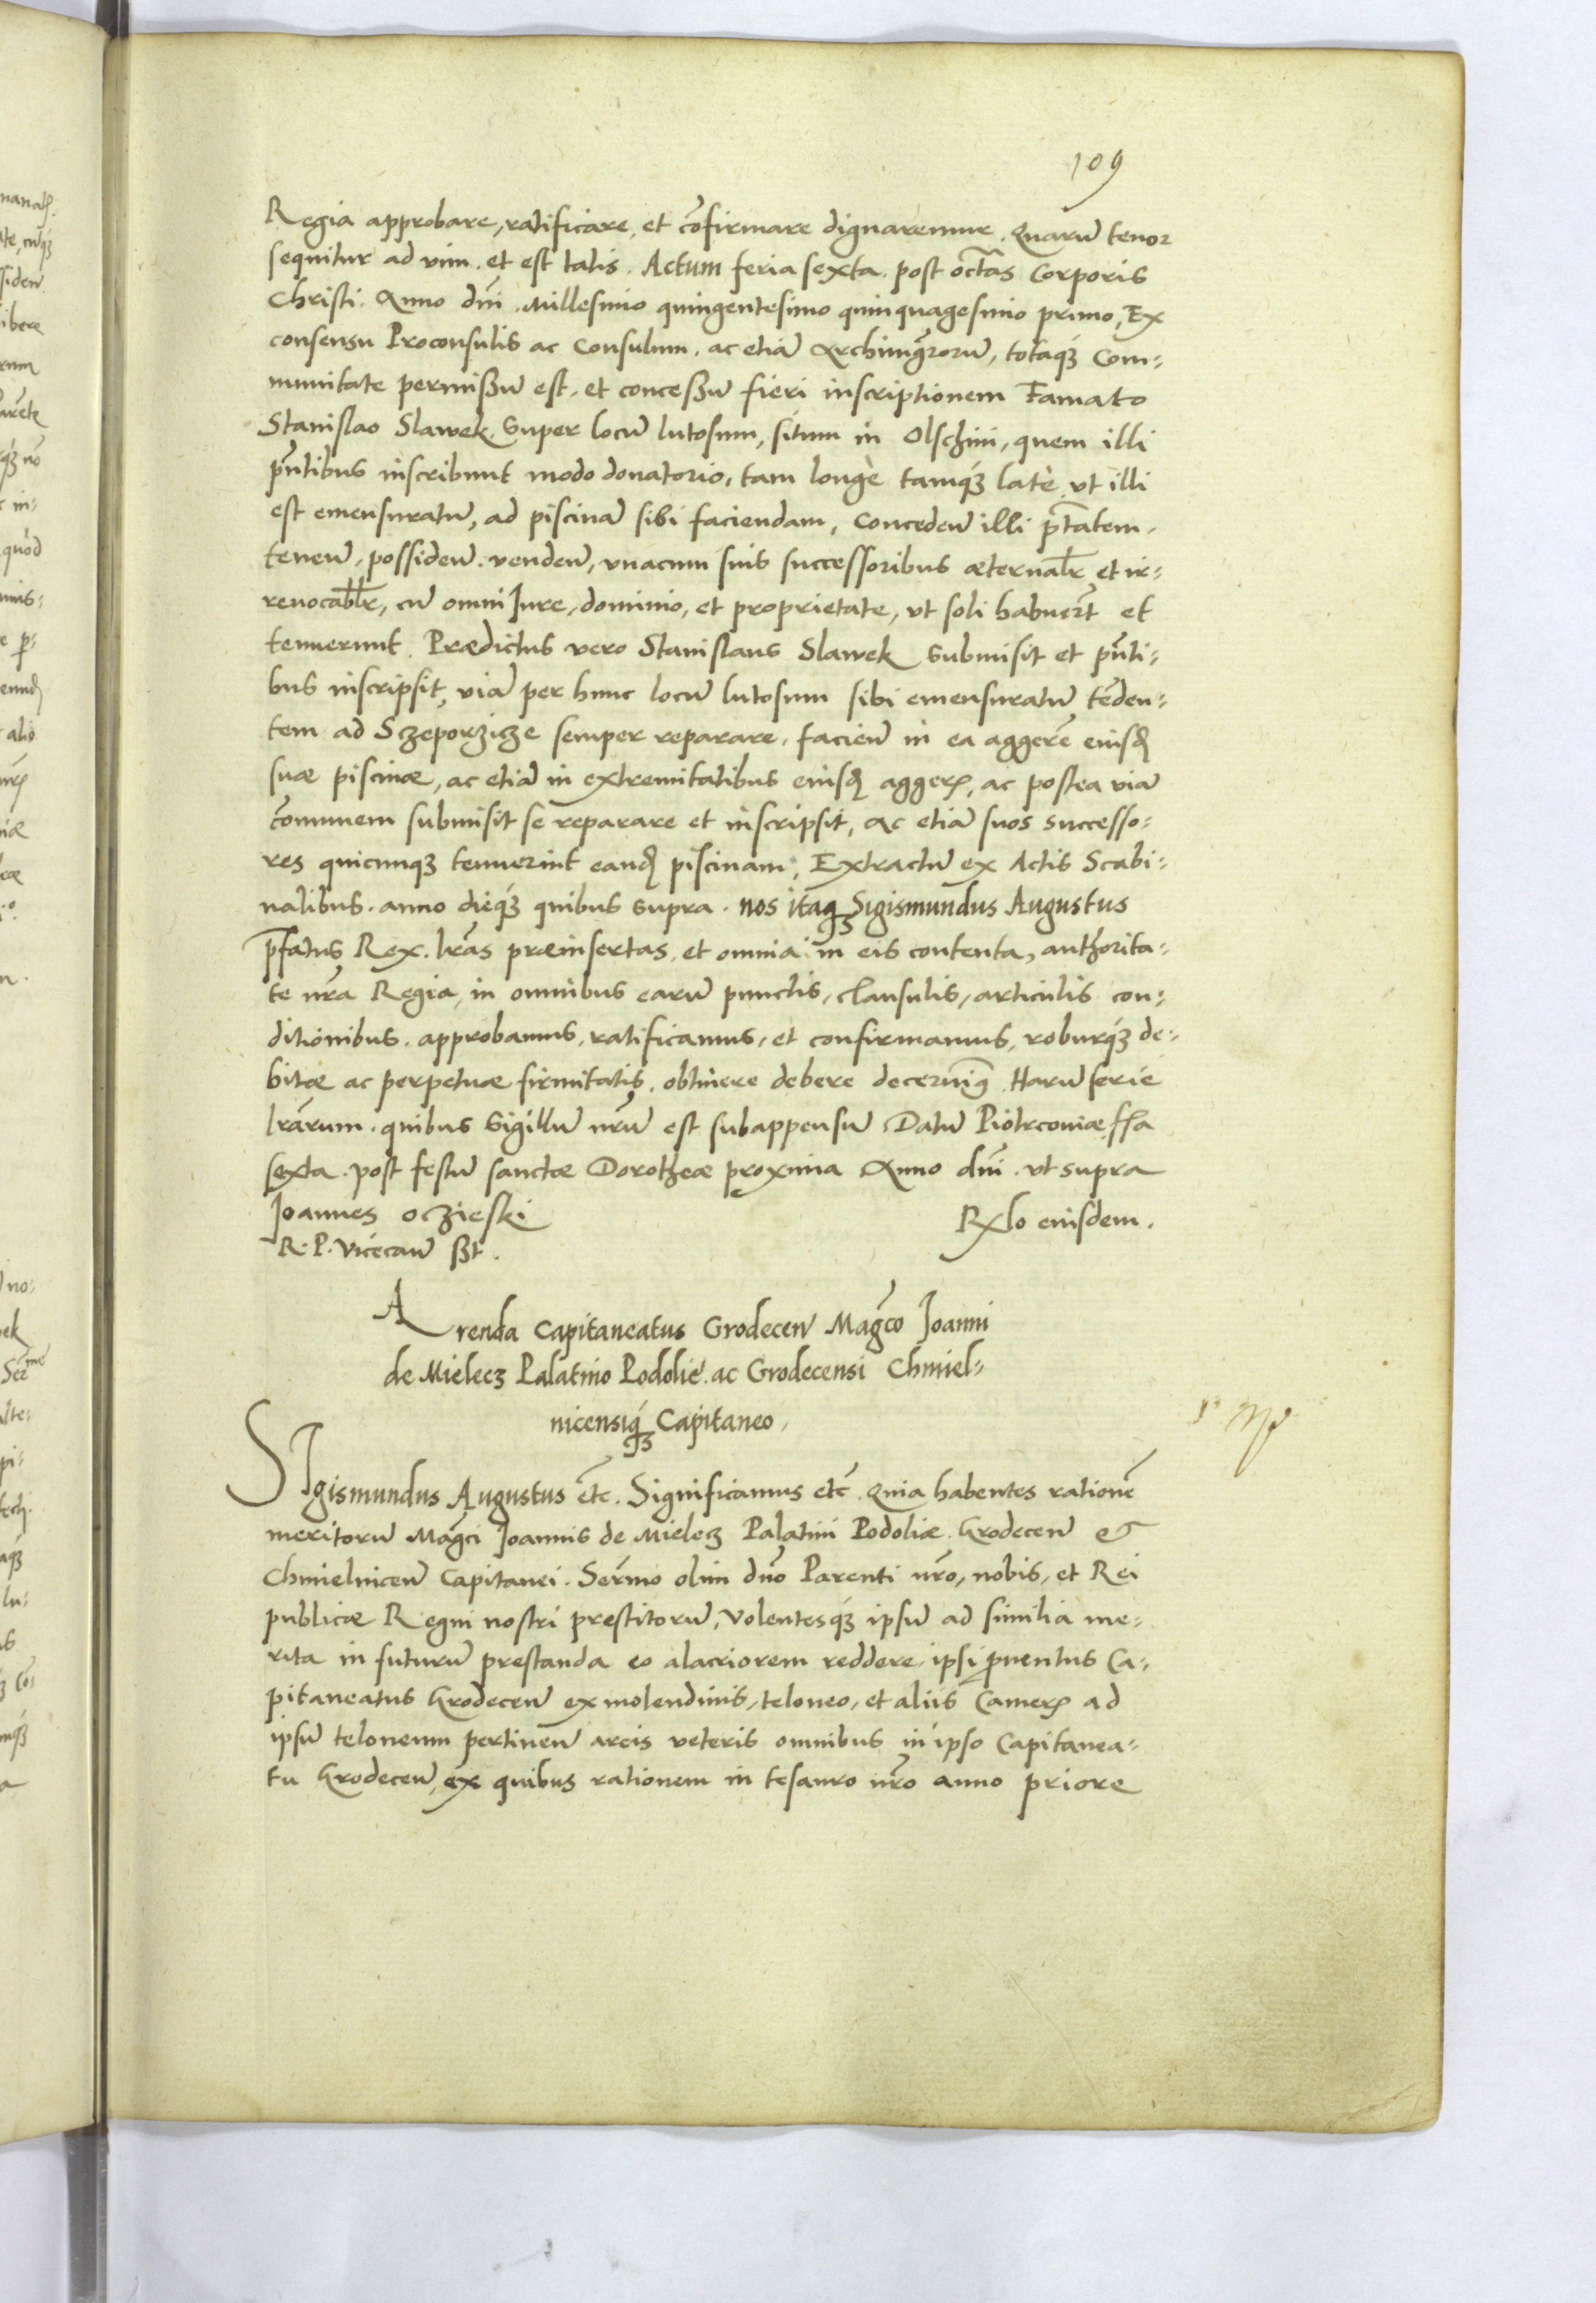 109
Regia approbare, ratificare, et cõfirmare dignaremur. Quarũ tenor
sequitur ad vim. et est talis. Actum feria sexta. post octãs Corporis
Christi. Anno dni. Millesimo quingentesimo quinquagesimo primo, Ex
consensu Proconsulis ac Consulum, ac etiã Archimgrorũ, totaq́ꝫ Com-
munitate permißũ est, et conceßũ fieri inscriptionem Famato
Stanislao Slawek. Super locũ lutosum, situm in Olschini, quem illi
pñtibus inscribunt modo donatorio, tam longè tamq́ꝫ latè, vt illi
est emensuratũ, ad piscinã sibi faciendam, Concedeñ illi ptãtem.
teneñ. possideñ. vendeñ, vnacum suis successoribus æternalr̃ et ir-
reuocablr̃, cũ omni Iure, dominio, et proprietate, vt soli habuert̃ et
tenuerunt. Prædictus vero Stanislaus Slawek submisit et pñti-
bus inscripsit, viã per hunc locũ lutosum sibi emensuratũ tẽden-
tem ad Sczeporzicze semper reparare, facieñ in ea aggerẽ eiusꝺ
suæ piscinæ, ac etiã in extremitatibus eiusꝺ aggerꝭ, ac postea viã
cõmunem submisit se reparare et inscripsit, ac etiã suos successo-
res quicunqꝫ tenuerint eandꝭ piscinam, Extractũ ex Actis Scabi-
nalibus. anno dieq́ꝫ quibus supra. nos itaqꝫ Sigismundus Augustus
p̄fatus Rex. lr̃as præinsertas, et omnia in eis contenta, authorita-
te nr̃a Regia, in omnibus earũ punctis, clausulis, articulis con-
ditionibus. approbamus, ratificamus, et confirmamus, roburq́ꝫ de-
bitæ ac perpetuæ firmitatis. obtinere debere decernimꝰ. Harũ serie
lr̃arum. quibus Sigillũ nr̃ũ est subappensũ. Datũ Piotrcouiæ. ffa
sexta. post festũ sanctæ Dorotheæ proxima Anno dñi. vt supra
Joannes Oczieski
Rxlo eiusdem.
R. P. Vicecañ ßt.
Arenda Capitaneatus Grodeceñ Magco Joanni
de Mielecz Palatino Podolie. ac Grodecensi Chmiel-
nicensiq́ꝫ Capitaneo.
SIgismundus Augustus etc̃. Significamus etc̃. Quia habentes rationẽ
meritorũ Magci Joannis de Mielecz Palatini Podoliæ. Grodeceñ et
Chmielniceñ Capitanei. Serr̃mo olim dño Parenti nr̃o, nobis, et Rei
publicæ Regni nostri prestitorũ, Volentesq́ꝫ ipsũ ad similia me-
rita in futurũ prestanda eo alacriorem reddere, ipsi ꝓuentus Ca-
pitaneatus Grodeceñ ex molendinis, teloneo, et aliis Camerꝭ ad
ipsũ teloneum pertineñ arcis veteris omnibus in ipso Capitanea-
tu Grodeceñ, ex quibus rationem in tesauro nr̃o anno priore